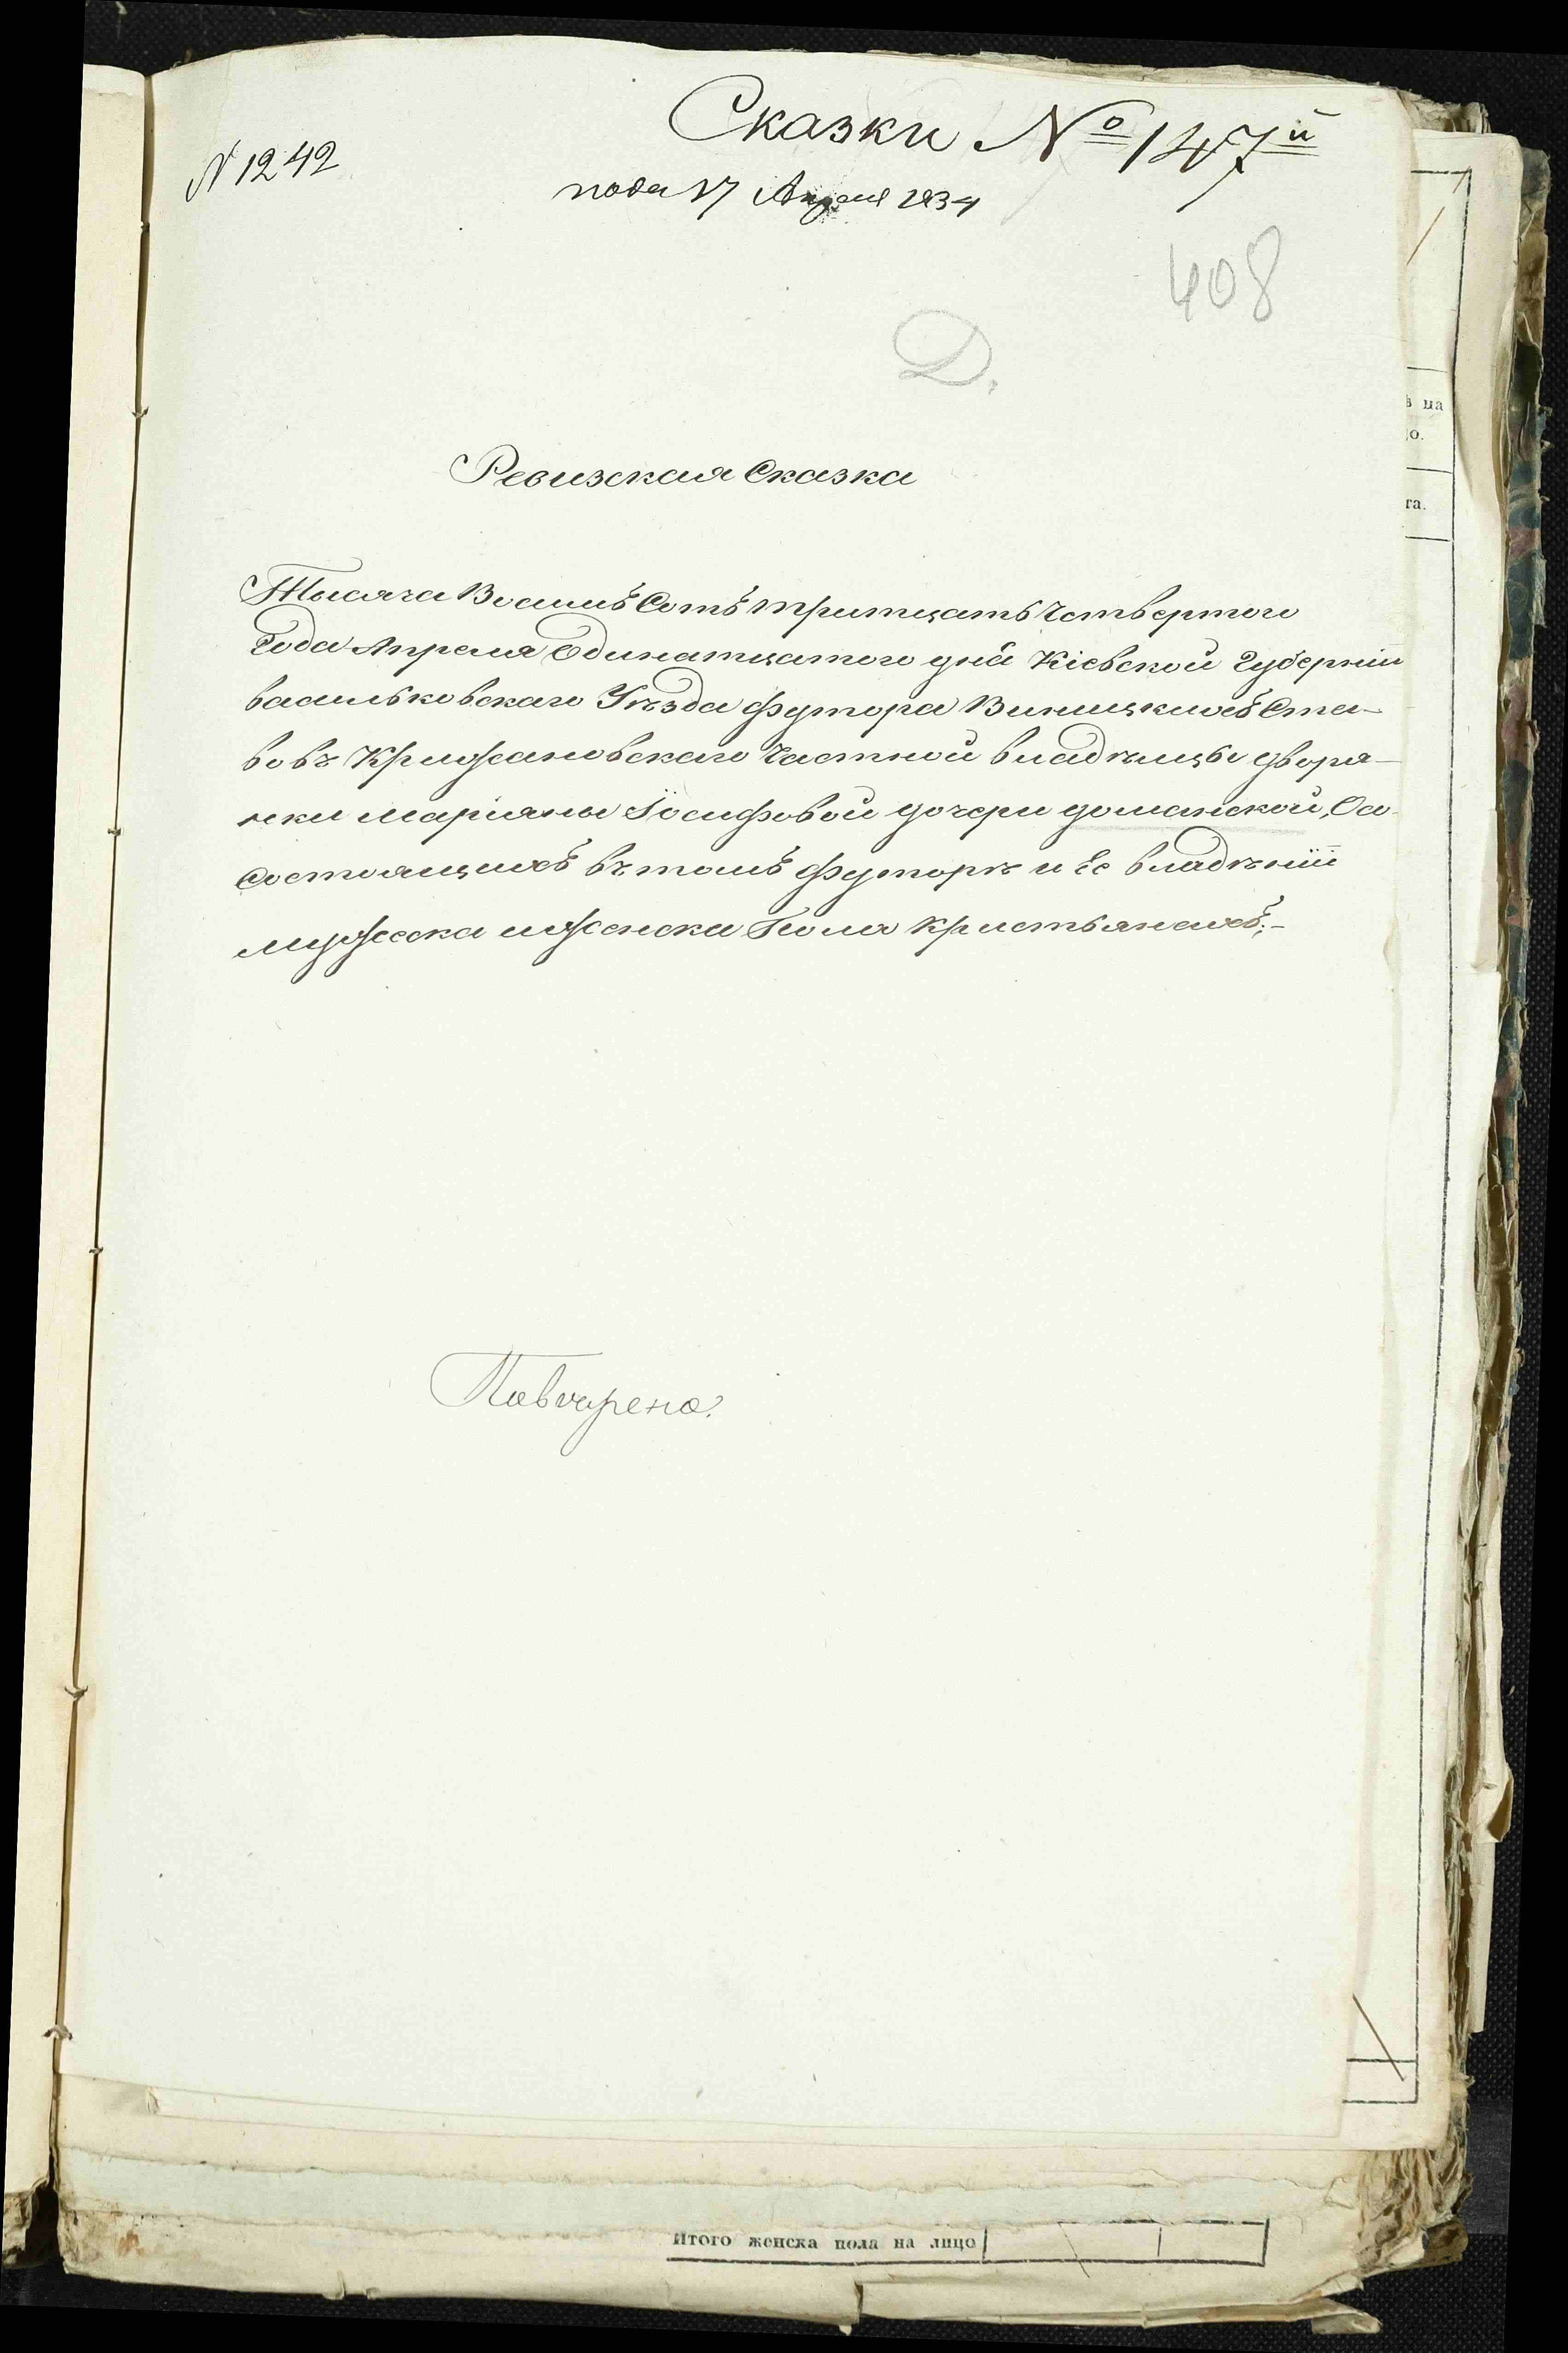 N 1242
Сказки № 147й
пода 17 Апреля 1834
408
D.
Ревизская Сказка
Тысяча Восимъ Сотъ тритцать Четвертого
Года Апреля Одинатцатого дня Кіевской Губерніи
васильковскаго Уѣзда футора Виницкихъ Ста-
вовъ Крижановскаго Частной владѣлицы дворя-
нки Маріяны Іосифовой дочери доманской, Оо
состоящихъ въ томъ футорѣ и Ее владѣніи
мужеска и женска Пола Кристьянахъ.-
Повѣрено.
ѣ на
о.
га.
Итого женска пола на лицо